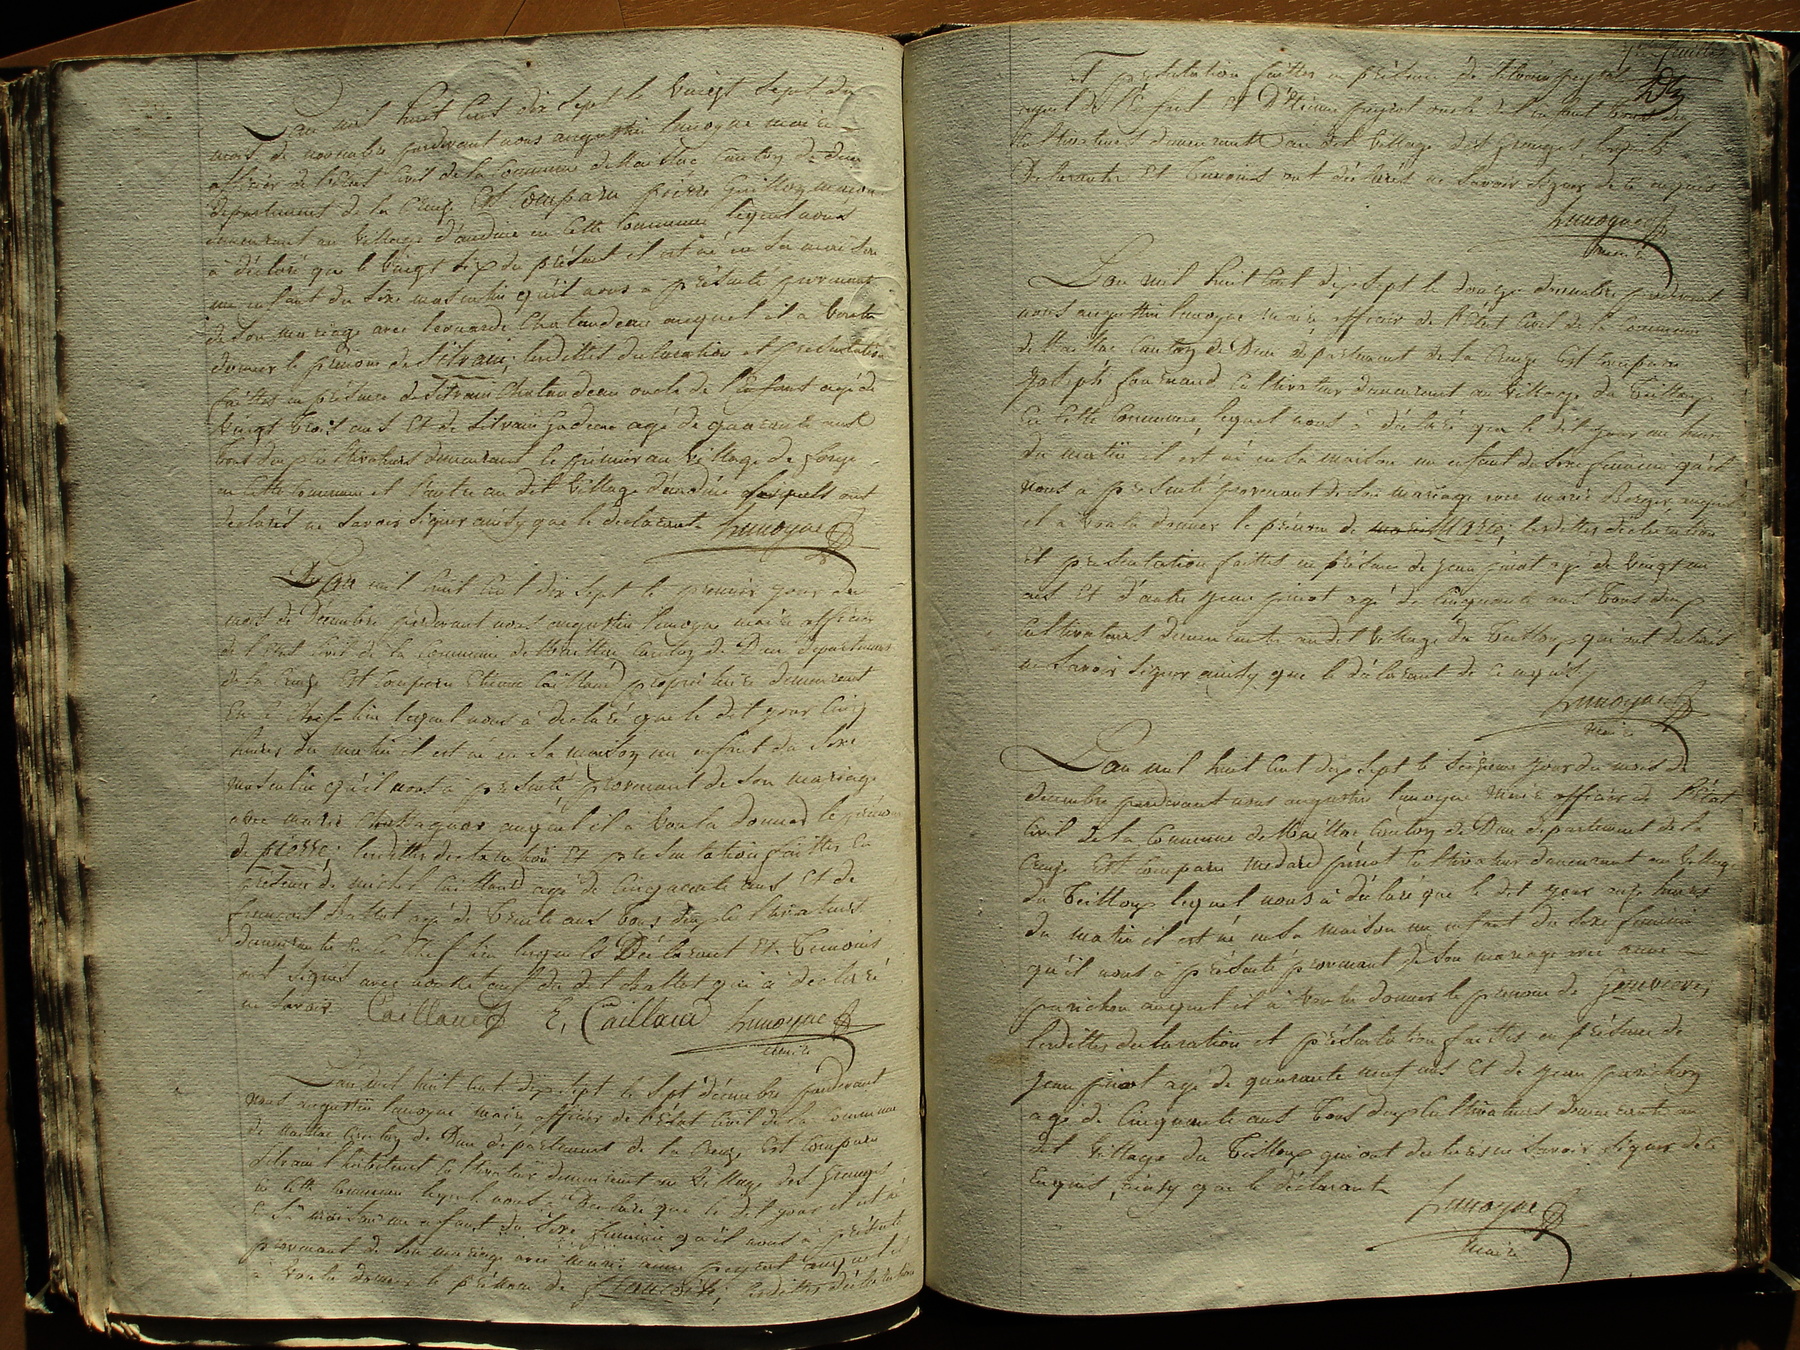 L'an mil huit cent dix sept le vingt sept du
mois de novembre pardevant nous augustin Lunoyne maire
officier de l'état civil de la commune de Maillac canton de Dun
département de la Creuse Est comparu pierre Guillon maçon
demeurant au village d'audine en cette commune lequel nous
à déclaré que le vingt six du présent il est né en sa maison
un enfant du sexe masculin qu'il nous a présenté provenant
de son mariage avec leonarde Chatendeau auquel il a voulu
donner le prénom de Silvain; lesdittes declaration et presentation
faittes en présence de Silvain Chatendeau oncle de l'enfant agé de
vingt trois ans Et de Silvain agé de quarente ans
tous deux cultivateurs demeurant le premier au village de forge
en cette commune et l'autre au dit village d'audine lesquels ont
declarés ne savoir signer ainsy que le declarant Lunoyne
L'an mil huit cent dix sept le premier jour du
mois de Décembre pardevant nous augustin Lunoyne maire officier
de l'état civil de la commune de Maillac canton de Dun departement
de la Creuse Est comparu Etienne Caillaud proprietaire demeurant
En ce Chef-lieu lequel nous à declaré que le dit jour cinq
heures du matin il est né en sa maison un enfant du sexe
masculin qu'il nous à presenté provenant de son mariage
avec marie auquel il à voulu donner le prénom
de pierre; lesdittes declaration Et presentation faittes en
présence de michel Caillaud agé de cinquante ans Et de
françois Ballot agé de trente ans tous deux cultivateurs
demeurants En ce Chef lieu lesquels Déclarant Et Temoins
ont signés avec nous sauf du dit Ballot qui à declaré
ne savoir Caillaud E, Caillaud Lunoyne
maire
L'an mil huit cent dix sept le sept décembre pardevant
nous augustin Lunoyne maire officier de l'état civil de la commune
de Maillac canton de Dun departement de la Creuse Est comparu
Silvain cultivateur demeurant au village des Granges
en cette commune lequel nous à Declaré que le dit jour il est né
En sa maison un enfant du sexe féminin qu'il nous à présenté
provenant de son mariage avec marie anne peyrot auquel il
à voulu donner le prénom de françoise; lesdittes déclaration
Et présentation faittes en présence de Silvain peyrot
ayeul de l'Enfant Et D'Etienne peyrot oncle de l'enfant tous deux
cultivateurs demeurants au dit village des Granges lesquels
Declarants Et temoins ont déclarés ne savoir signer de ce enquis
Lunoyne
maire
L'an mil huit cent dix sept le douze decembre pardevant
nous augustin Lunoyne maire officier de l'état civil de la commune
de Maillac canton de Dun département de la Creuse Est comparu
Joseph cultivateur demeurant au village du Teilloux
En cette commune, lequel nous à déclaré que le dit jour
du matin il est né en sa maison un enfant du sexe féminin qu'il
nous à présenté provenant de son mariage avec marie Berger auquel
il à voulu donner le prénom de marie; lesdittes declaration
Et presentation faittes en présence de jean pinot agé de vingt un
ans Et d'autre jean pinot agé de cinquante ans tous deux
cultivateurs demeurants audit village du Teilloux qui ont declarés
ne savoir signer ainsy que le déclarant de ce enquis
Lunoyne
maire
L'an mil huit cent dix sept le seizieme jour du mois de
decembre pardevant nous augustin Lunoyne maire officier de l'Etat
civil de la commune de Maillac canton de Dun département de la
Creuse Est comparu medard pinot cultivateur demeurant au village
du Teilloux lequel nous à déclaré que le dit jour onze heures
du matin il est né en sa maison un enfant du sexe feminin
qu'il nous à présenté provenant de son mariage avec anne
parichon auquel il à voulu donner le prenom de Genevieve;
lesdittes declaration et présentation faittes en présence de
jean pinot agé de quarante neuf ans Et de jean parichon
agé de cinquante ans tous deux cultivateurs demeurants au
dit village du Teilloux qui ont declarés ne savoir signer de ce
Enquis ainsy que le déclarant
Lunoyne
maire